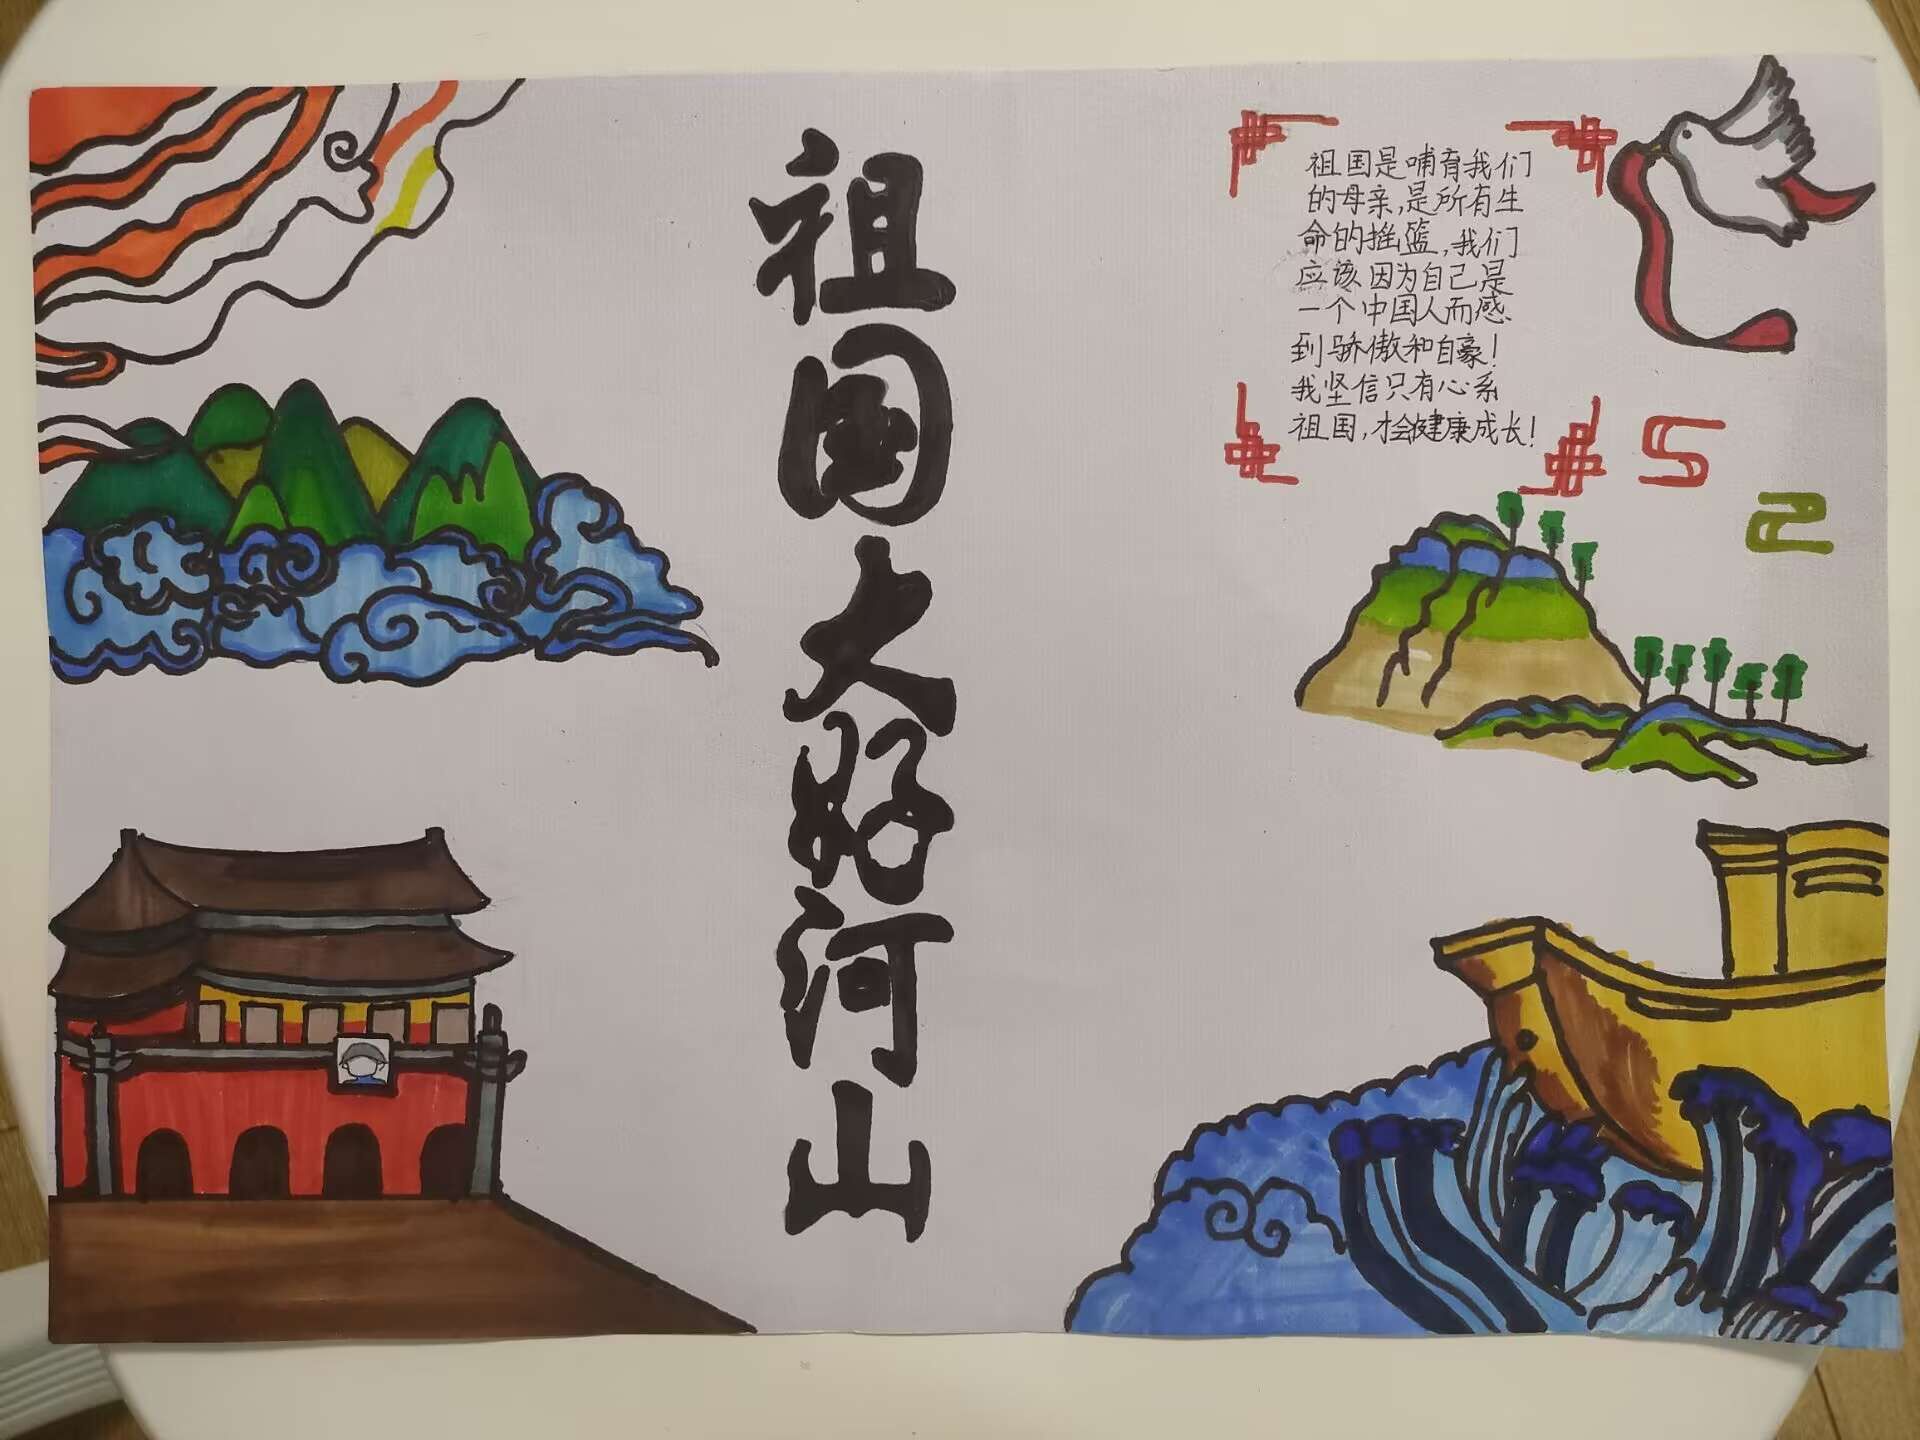 祖国大好河山
祖国是哺育我们
的母亲,是所有生
命的摇篮,我们
应该因为自己是
一个中国人而感
到骄傲和自豪!
我坚信只有心系
祖国,才会健康成长!